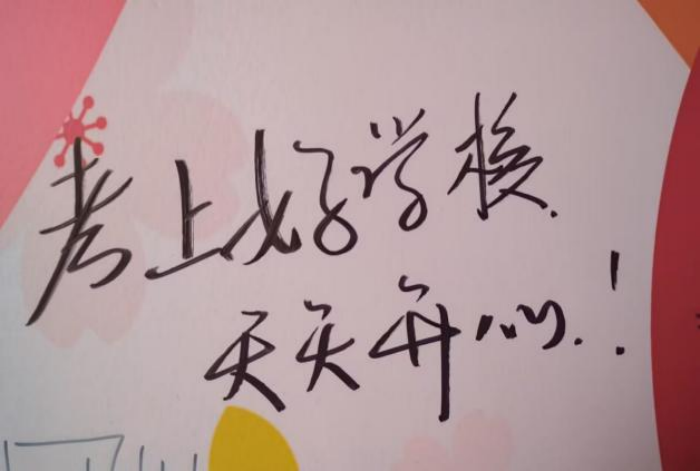 考上好学校.
天天开心.!